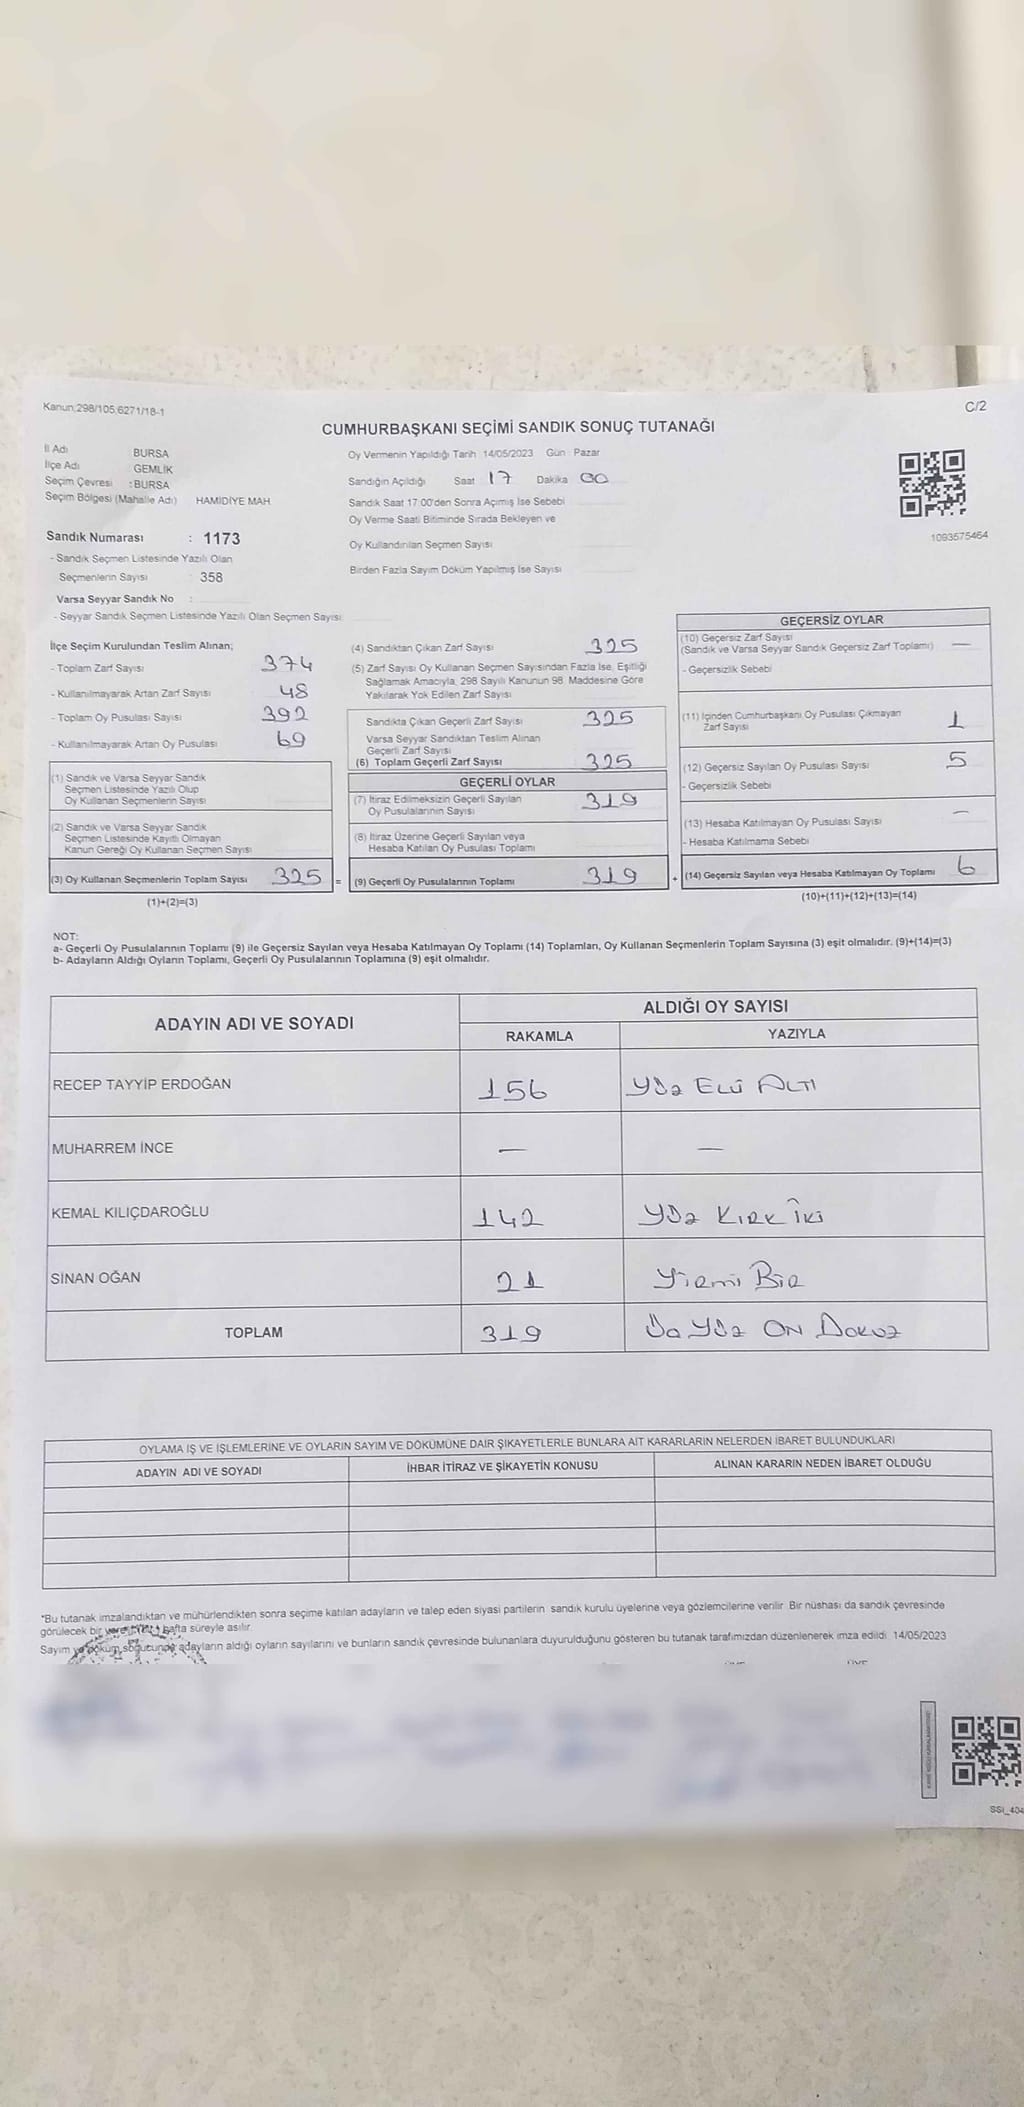 Kanun;298/105,6271/18-1
C/2
CUMHURBAŞKANI SEÇİMİ SANDIK SONUÇ TUTANAĞI
İl Adı BURSA
İlçe Adı GEMLİK
Seçim Çevresi : BURSA
Seçim Bölgesi (Mahalle Adı) HAMİDİYE MAH
Sandık Numarası : 1173
- Sandık Seçmen Listesinde Yazılı Olan
Seçmenlerin Sayısı 358
Varsa Seyyar Sandık No :
- Seyyar Sandık Seçmen Listesinde Yazılı Olan Seçmen Sayısı
Oy Vermenin Yapıldığı Tarih 14/05/2023 Gün Pazar
Sandığın Açıldığı Saat 17 Dakika 00
Sandık Saat 17:00'den Sonra Açımış İse Sebebi
Oy Verme Saati Bitiminde Sırada Bekleyen ve
Oy Kullandırılan Seçmen Sayısı
Birden Fazla Sayım Döküm Yapılmış İse Sayısı
1093575464
İlçe Seçim Kurulundan Teslim Alınan;
- Toplam Zarf Sayısı 374
- Kullanılmayarak Artan Zarf Sayısı 48
- Toplam Oy Pusulası Sayısı 392
- Kullanılmayarak Artan Oy Pusulası 69
(1) Sandık ve Varsa Seyyar Sandık
Seçmen Listesinde Yazılı Olup
Oy Kullanan Seçmenlerin Sayısı
(2) Sandık ve Varsa Seyyar Sandık
Seçmen Listesinde Kayıtlı Olmayan
Kanun Gereği Oy Kullanan Seçmen Sayısı
(3) Oy Kullanan Seçmenlerin Toplam Sayısı 325 =
(1)+(2)=(3)
(4) Sandıktan Çıkan Zarf Sayısı 325
(5) Zarf Sayısı Oy Kullanan Seçmen Sayısından Fazla İse, Eşitliği
Sağlamak Amacıyla, 298 Sayılı Kanunun 98. Maddesine Göre
Yakılarak Yok Edilen Zarf Sayısı
Sandıkta Çıkan Geçerli Zarf Sayısı 325
Varsa Seyyar Sandıktan Teslim Alınan
Geçerli Zarf Sayısı
(6) Toplam Geçerli Zarf Sayısı 325
GEÇERLİ OYLAR
(7) İtiraz Edilmeksizin Geçerli Sayılan
Oy Pusulalarının Sayısı 319
(8) İtiraz Üzerine Geçerli Sayılan veya
Hesaba Katılan Oy Pusulası Toplamı
(9) Geçerli Oy Pusulalarının Toplamı 319 +
GEÇERSİZ OYLAR
(10) Geçersiz Zarf Sayısı
(Sandık ve Varsa Seyyar Sandık Geçersiz Zarf Toplamı) —
- Geçersizlik Sebebi
(11) İçinden Cumhurbaşkanı Oy Pusulası Çıkmayan
Zarf Sayısı 1
(12) Geçersiz Sayılan Oy Pusulası Sayısı 5
- Geçersizlik Sebebi
(13) Hesaba Katılmayan Oy Pusulası Sayısı —
- Hesaba Katılmama Sebebi
(14) Geçersiz Sayılan veya Hesaba Katılmayan Oy Toplamı 6
(10)+(11)+(12)+(13)=(14)
NOT:
a- Geçerli Oy Pusulalarının Toplamı (9) ile Geçersiz Sayılan veya Hesaba Katılmayan Oy Toplamı (14) Toplamları, Oy Kullanan Seçmenlerin Toplam Sayısına (3) eşit olmalıdır. (9)+(14)=(3)
b- Adayların Aldığı Oyların Toplamı, Geçerli Oy Pusulalarının Toplamına (9) eşit olmalıdır.
ADAYIN ADI VE SOYADI ALDIĞI OY SAYISI
RAKAMLA YAZIYLA
RECEP TAYYİP ERDOĞAN 156 Yüz Elli Altı
MUHARREM İNCE — —
KEMAL KILIÇDAROĞLU 142 Yüz Kırk İki
SİNAN OĞAN 21 Yirmi Bir
TOPLAM 319 Üç Yüz On Dokuz
OYLAMA İŞ VE İŞLEMLERİNE VE OYLARIN SAYIM VE DÖKÜMÜNE DAİR ŞİKAYETLERLE BUNLARA AİT KARARLARIN NELERDEN İBARET BULUNDUKLARI
ADAYIN ADI VE SOYADI İHBAR İTİRAZ VE ŞİKAYETİN KONUSU ALINAN KARARIN NEDEN İBARET OLDUĞU
*Bu tutanak imzalandıktan ve mühürlendikten sonra seçime katılan adayların ve talep eden siyasi partilerin sandık kurulu üyelerine veya gözlemcilerine verilir. Bir nüshası da sandık çevresinde
görülecek bir hafta süreyle asılır.
Sayım adayların aldığı oyların sayılarını ve bunların sandık çevresinde bulunanlara duyurulduğunu gösteren bu tutanak tarafımızdan düzenlenerek imza edildi. 14/05/2023
SSİ_404